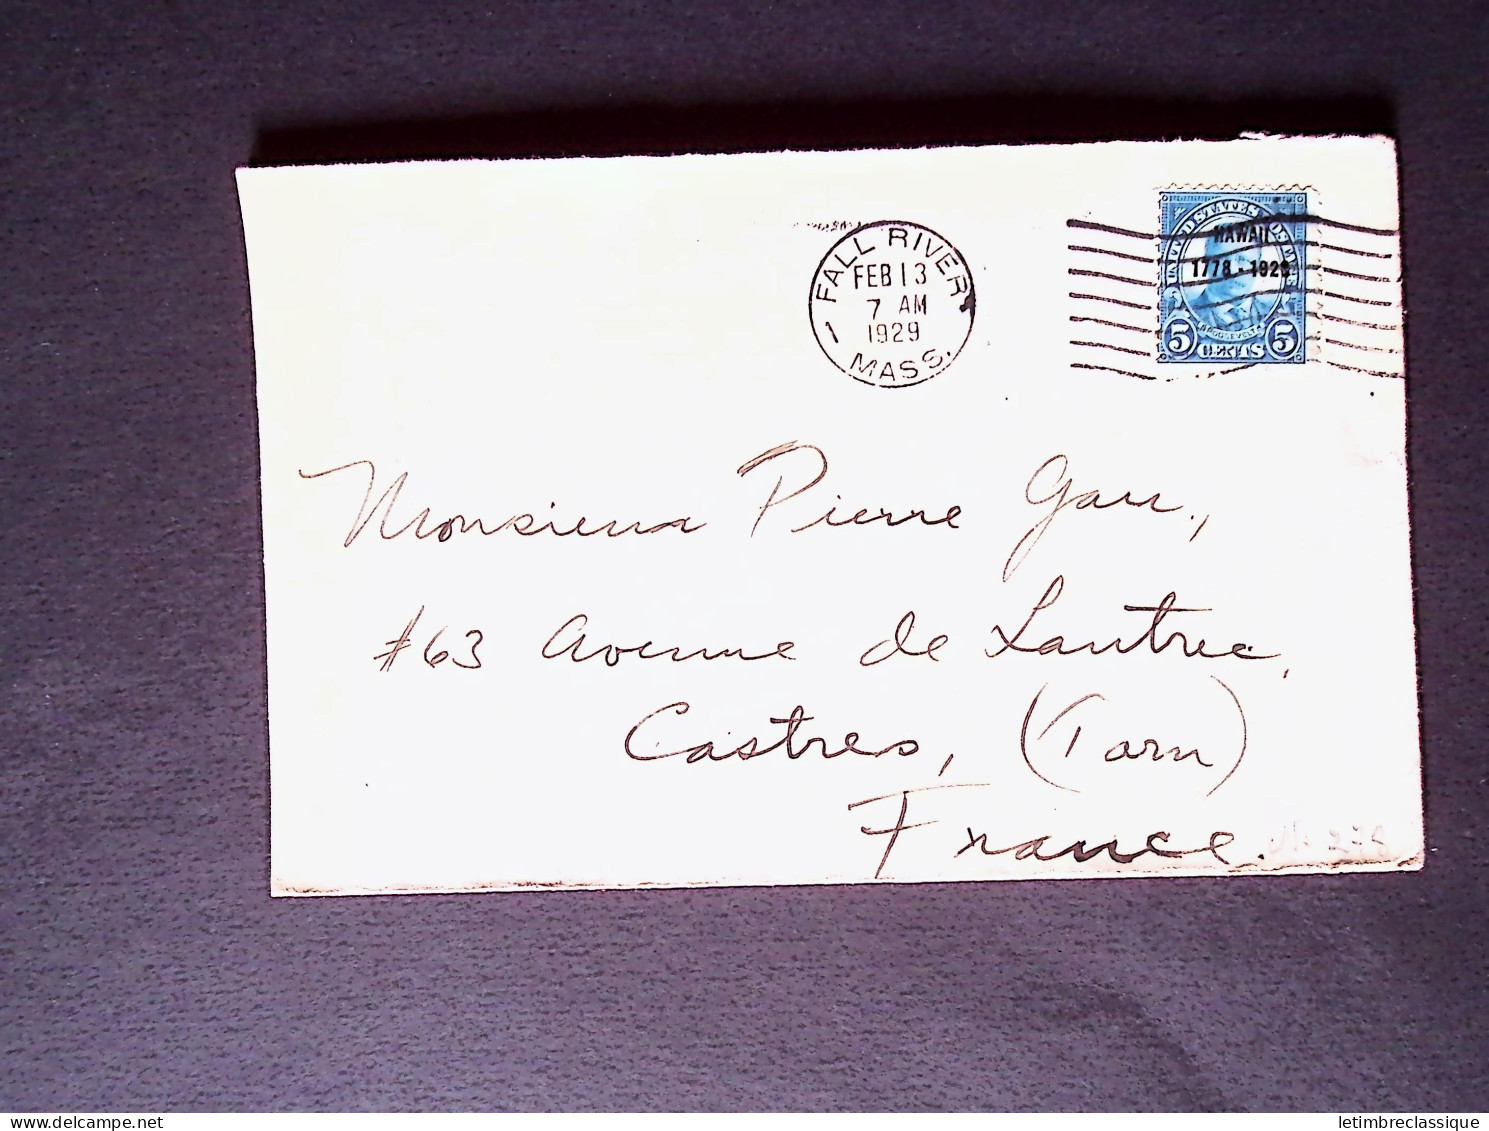 FALL RIVER
FEB 13
7 AM
1929
MASS.
1
UNITED STATES POSTAGE
HAWAII
1778 - 1928
ROOSEVELT
5 CENTS 5
Monsieur Pierre
#63 Avenue de Lautrec,
Castres, (Tarn)
France.
278
letimbreclassique